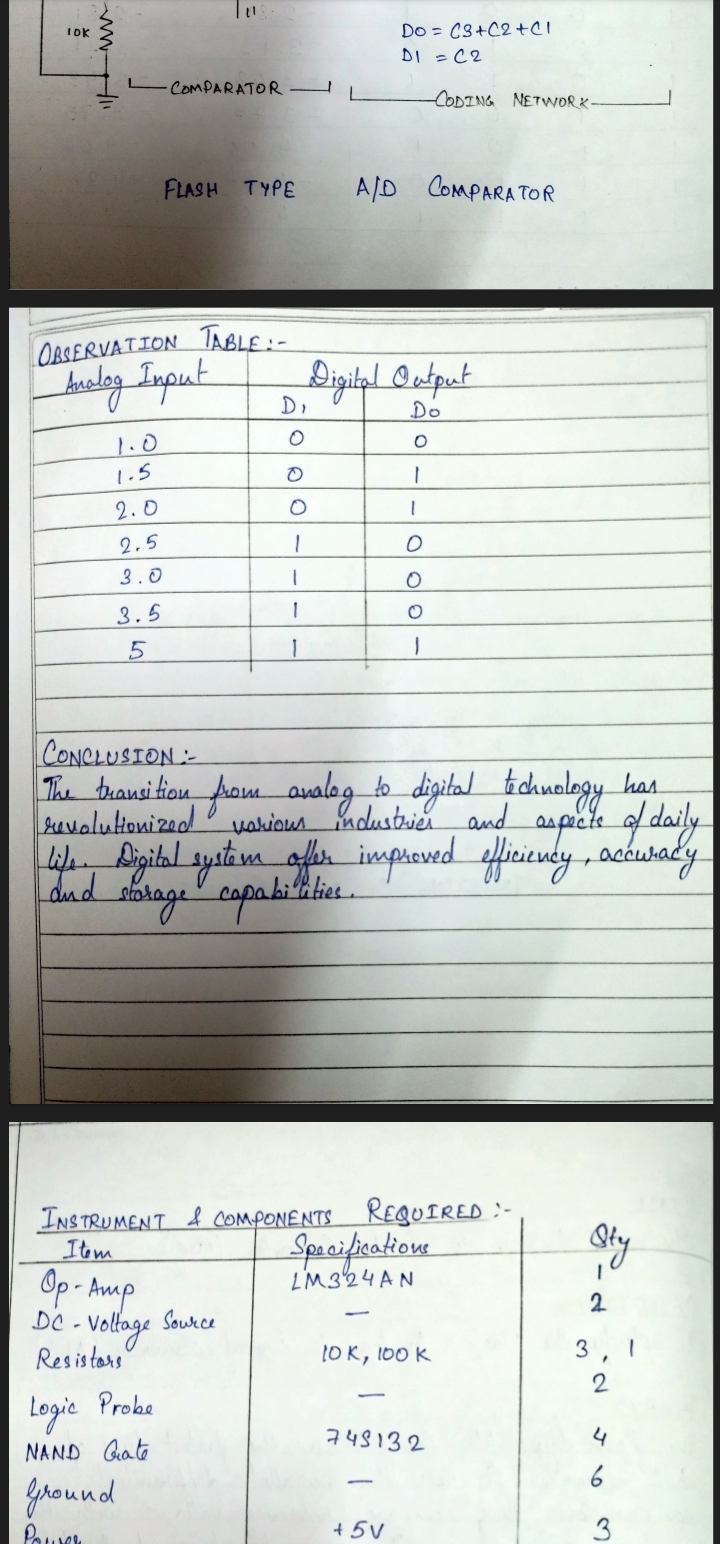 10K
D0 = C3+C2+C1
D1 = C2
COMPARATOR
CODING NETWORK
FLASH TYPE A/D COMPARATOR
OBSERVATION TABLE:-
Analog Input Digital Output
D1 D0
1.0 0 0
1.5 0 1
2.0 0 1
2.5 1 0
3.0 1 0
3.5 1 0
5 1 1
CONCLUSION:-
The transition from analog to digital technology has
revolutionized various industries and aspects of daily
life. Digital system offer improved efficiency, accuracy
and storage capabilities.
INSTRUMENT & COMPONENTS REQUIRED:-
Item Specifications Qty
Op-Amp LM324AN 1
DC-Voltage Source — 2
Resistors 10K, 100K 3, 1
Logic Probe — 2
NAND Gate 74S132 4
Ground — 6
Power +5V 3